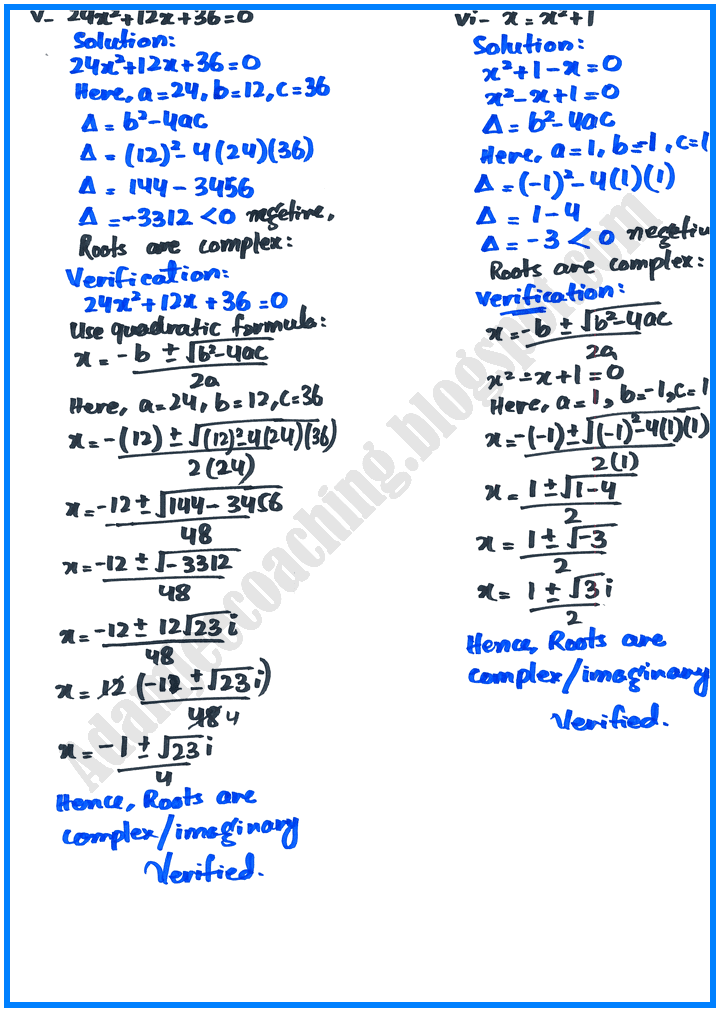 v- 24x²+12x+36=0
Solution:
24x²+12x+36=0
Here, a=24, b=12, c=36
Δ = b²-4ac
Δ = (12)²-4(24)(36)
Δ = 144-3456
Δ =-3312 <0 negetive,
Roots are complex:
Verification:
24x²+12x+36=0
Use quadratic formula:
x = -b ± √b²-4ac
2a
Here, a=24, b=12, c=36
x=-(12) ± √(12)²-4(24)(36)
2(24)
x=-12 ± √144-3456
48
x=-12 ± √-3312
48
x=-12 ± 12√23 i
48
x= 12 (-1 ± √23 i)
48 4
x= -1 ± √23 i
4
Hence, Roots are
complex/imaginary
Verified.
vi- x = x²+1
Solution:
x²+1-x=0
x²-x+1=0
Δ = b²-4ac
Here, a=1, b=-1, c=1
Δ=(-1)²-4(1)(1)
Δ = 1-4
Δ= -3 < 0 negetiv
Roots are complex:
Verification:
x=-b ± √b²-4ac
2a
x²-x+1=0
Here, a=1, b=-1, c=1
x=-(-1) ± √(-1)²-4(1)(1)
2(1)
x= 1 ± √1-4
2
x= 1 ± √-3
2
x= 1 ± √3 i
2
Hence, Roots are
complex/imaginary
Verified.
Adamjeecoaching.blogspot.com